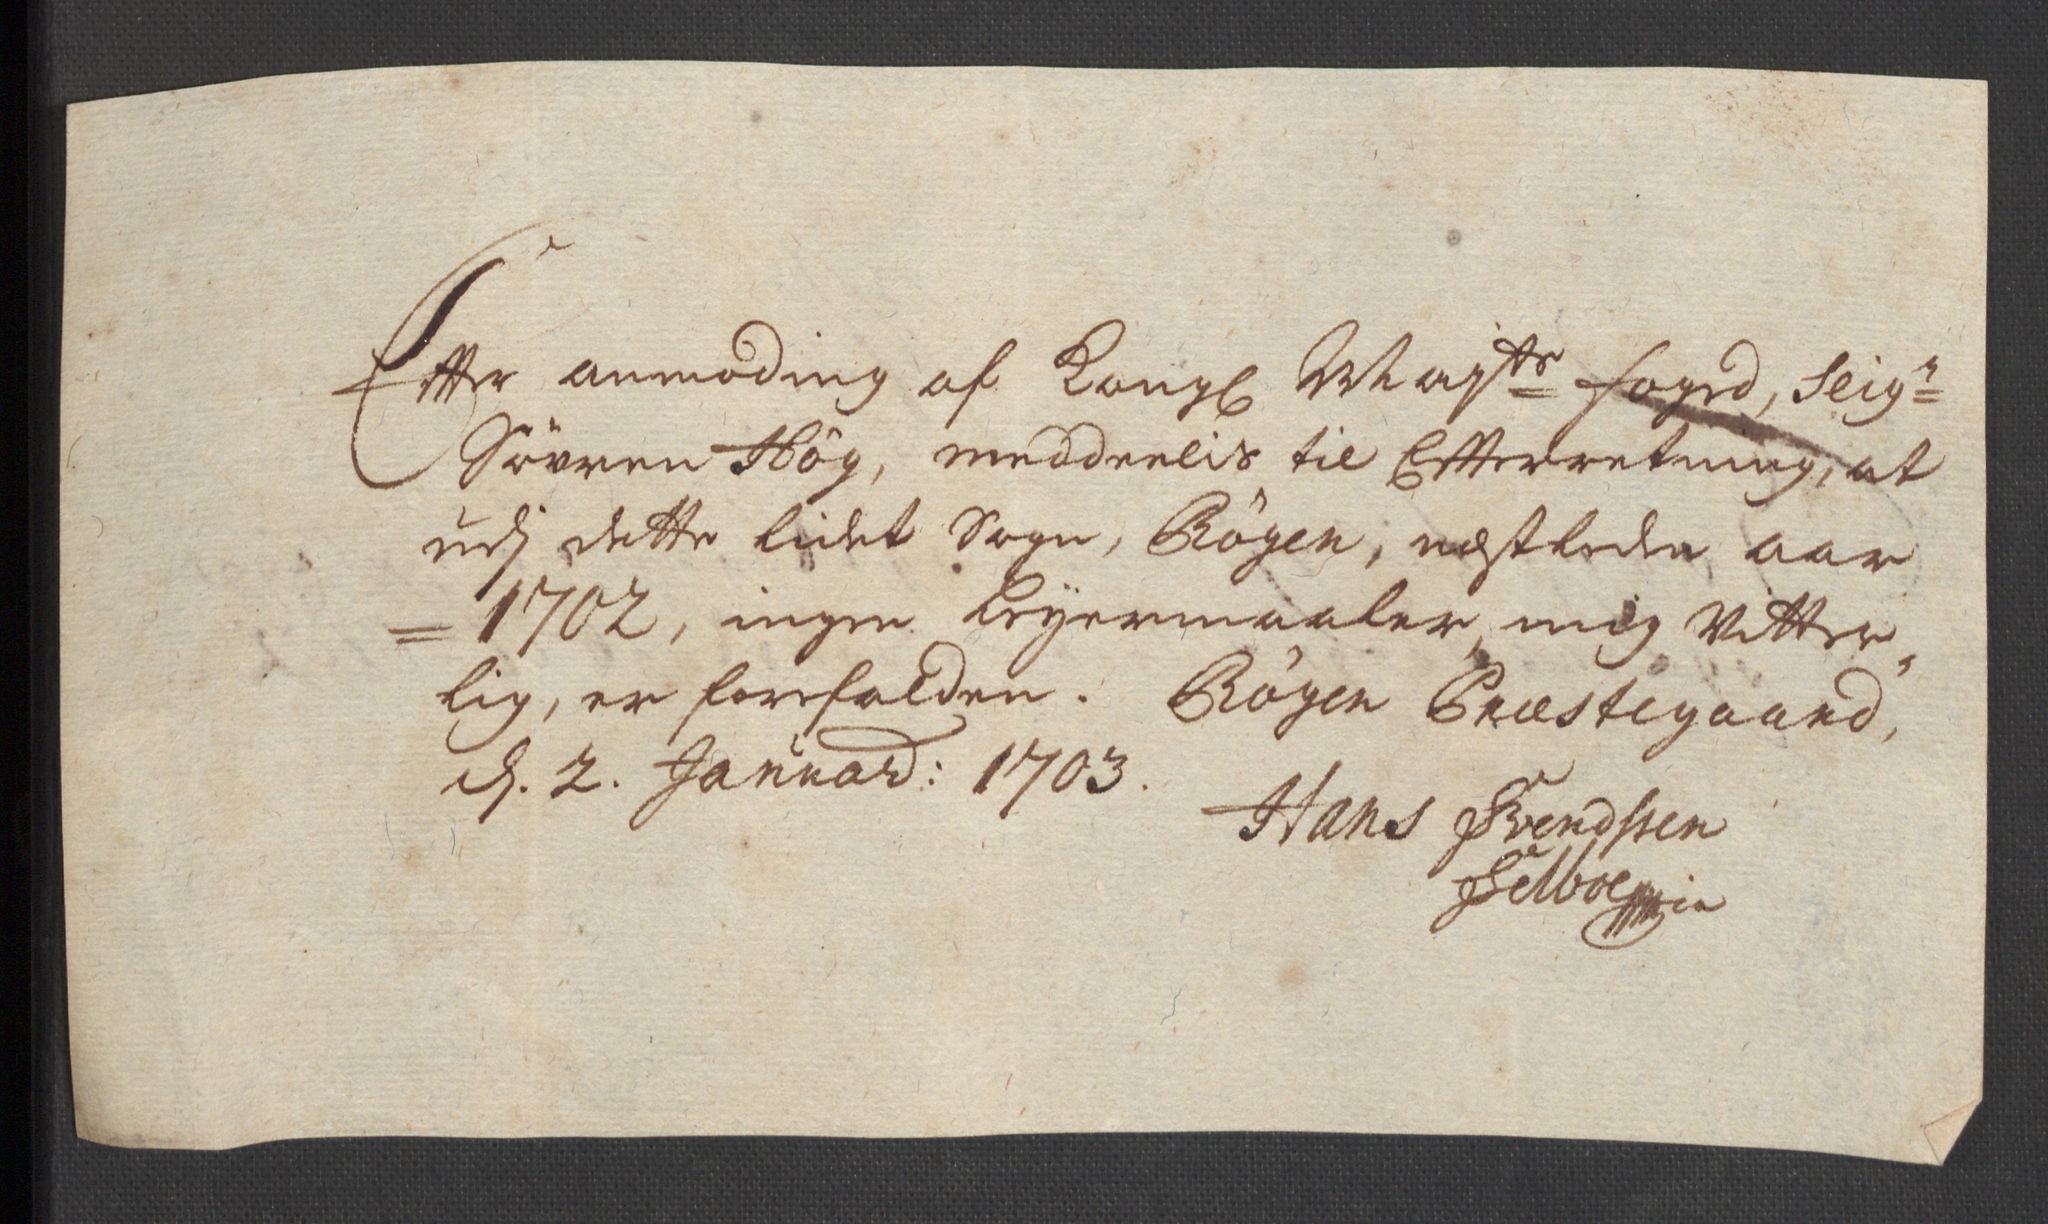 Efter anmoding af Kongl Mayts fogd, Seigr
Sövren Hög, meddeelis til Efterretning, at
udj dette lidet Sogn, Rögen, nestleden aar
= 1702, ingen Leyermaaler, mig Vitter„
lig, er forefalden. Rögen Præstegaard,
d. 2. Januar: 1703.
Hans Svendssen